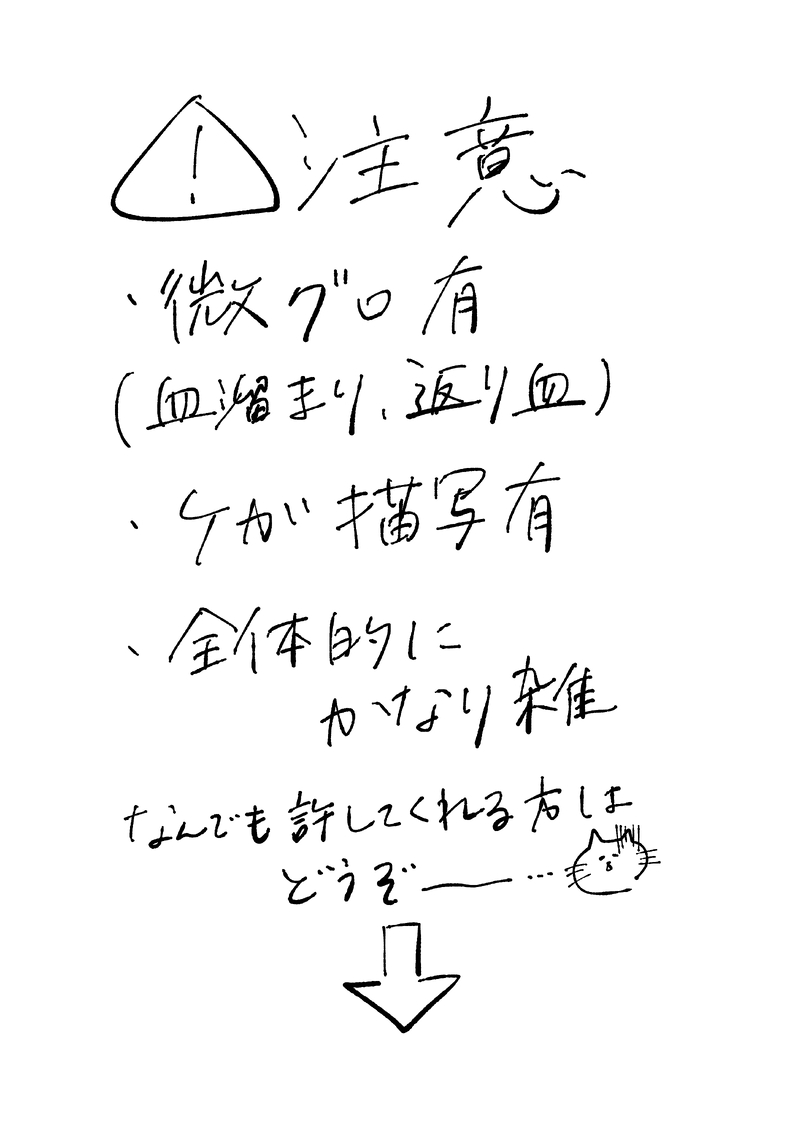 ⚠注意
・微グロ有
(血溜まり、返り血)
・ケガ描写有
・全体的に
かなり雑
なんでも許してくれる方は
どうぞ――…